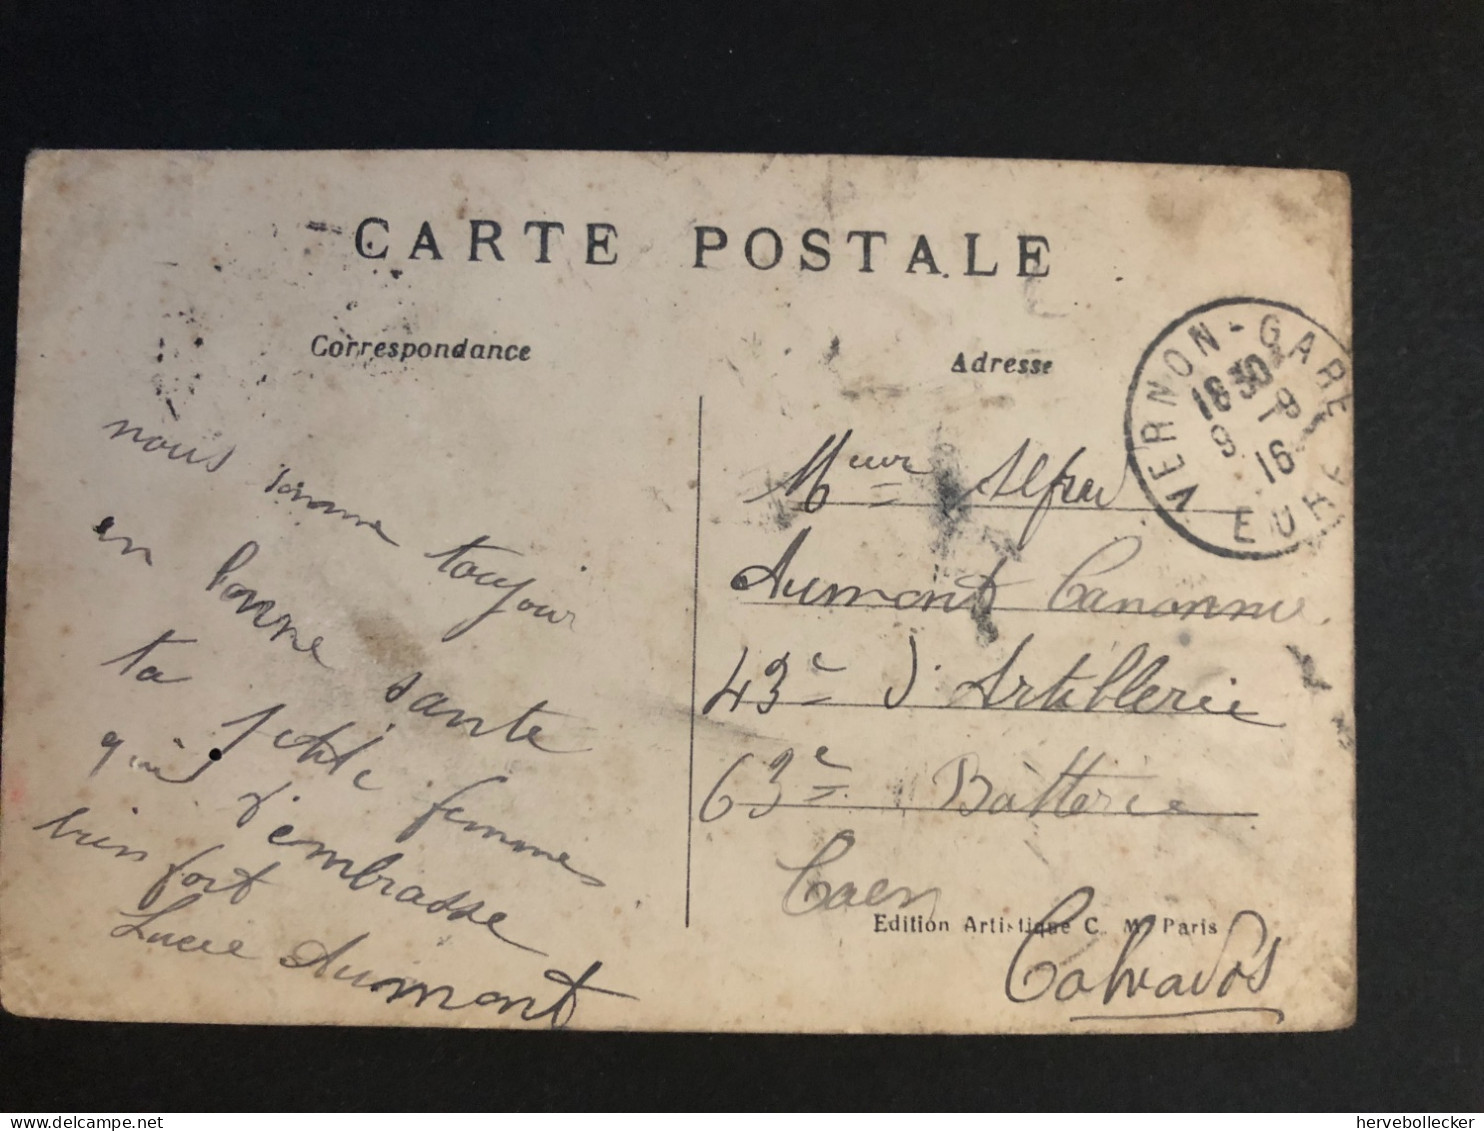 CARTE POSTALE
Correspondance
nous somme toujour
en bonne sante
ta petite femme
qui t'embrasse
bien fort
Lucie Aumont
Adresse
VERNON-GARE
18 30
9 - 8
16
EURE
Meur Alfred
Aumont Canonnie
43e d'Artillerie
63e Battterie
Caen
Edition Artistique C. M. Paris
Calvados
hervebollecker